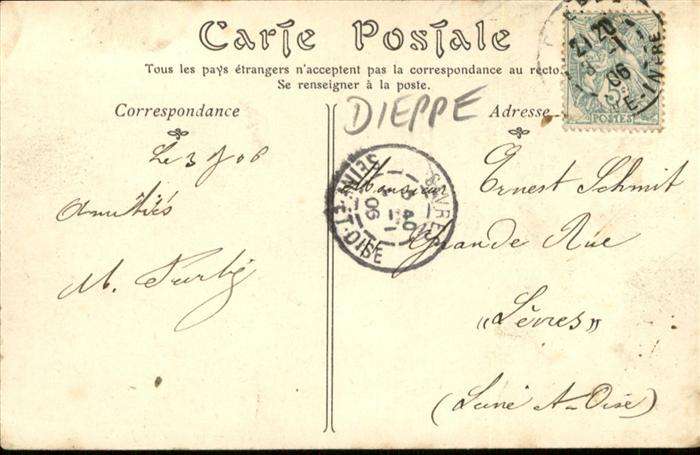 Carte Postale
Tous les pays étrangers n'acceptent pas la correspondance au recto.
Se renseigner à la poste.
DIEPPE
Correspondance
Le 3 06
Amitiés
M.
Adresse
Monsieur Ernest Schmit
Grande Rue
"Sèvres"
(Seine & Oise)
SÈVRES
6 40
3 1
06
SEINE-ET-OISE
21 20
3 1
06
POSTES